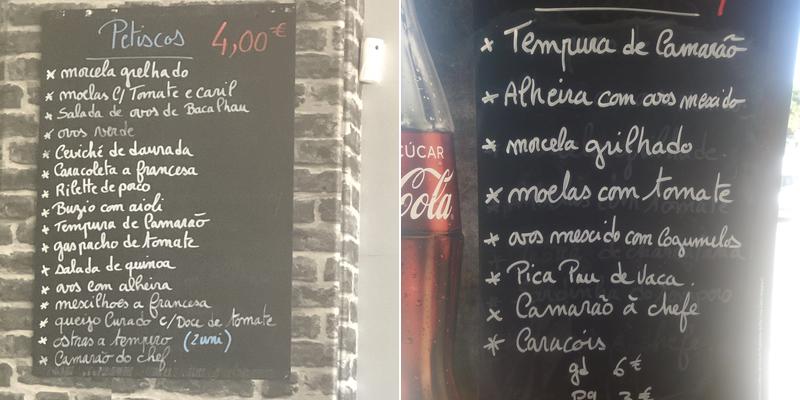 Petiscos 4,00€
* morcela grelhado
* moelas c/ Tomate e caril
* Salada de ovos de Bacalhau
* ovos verde
* Ceviché de daurada
* Caracoleta a francesa
* Rilette de porco
* Buzio com aioli
* Tempura de Camarão
* gaspacho de tomate
* salada de quinoa
* ovos com alheira
* mexilhoës a francesa
* queijo Curado c/Doce de tomate
* ostras a tempero (2uni)
* Camarão do chef.
* Tempura de Camarão
* Alheira com ovos mexido
* morcela grilhado
* moelas com tomate
* ovos mexido com Cogumelos
* Pica Pau de Vaca.
* Camarão à chefe
* Caracóis
gd 6€
pq 3€
ÇÚCAR
Cola